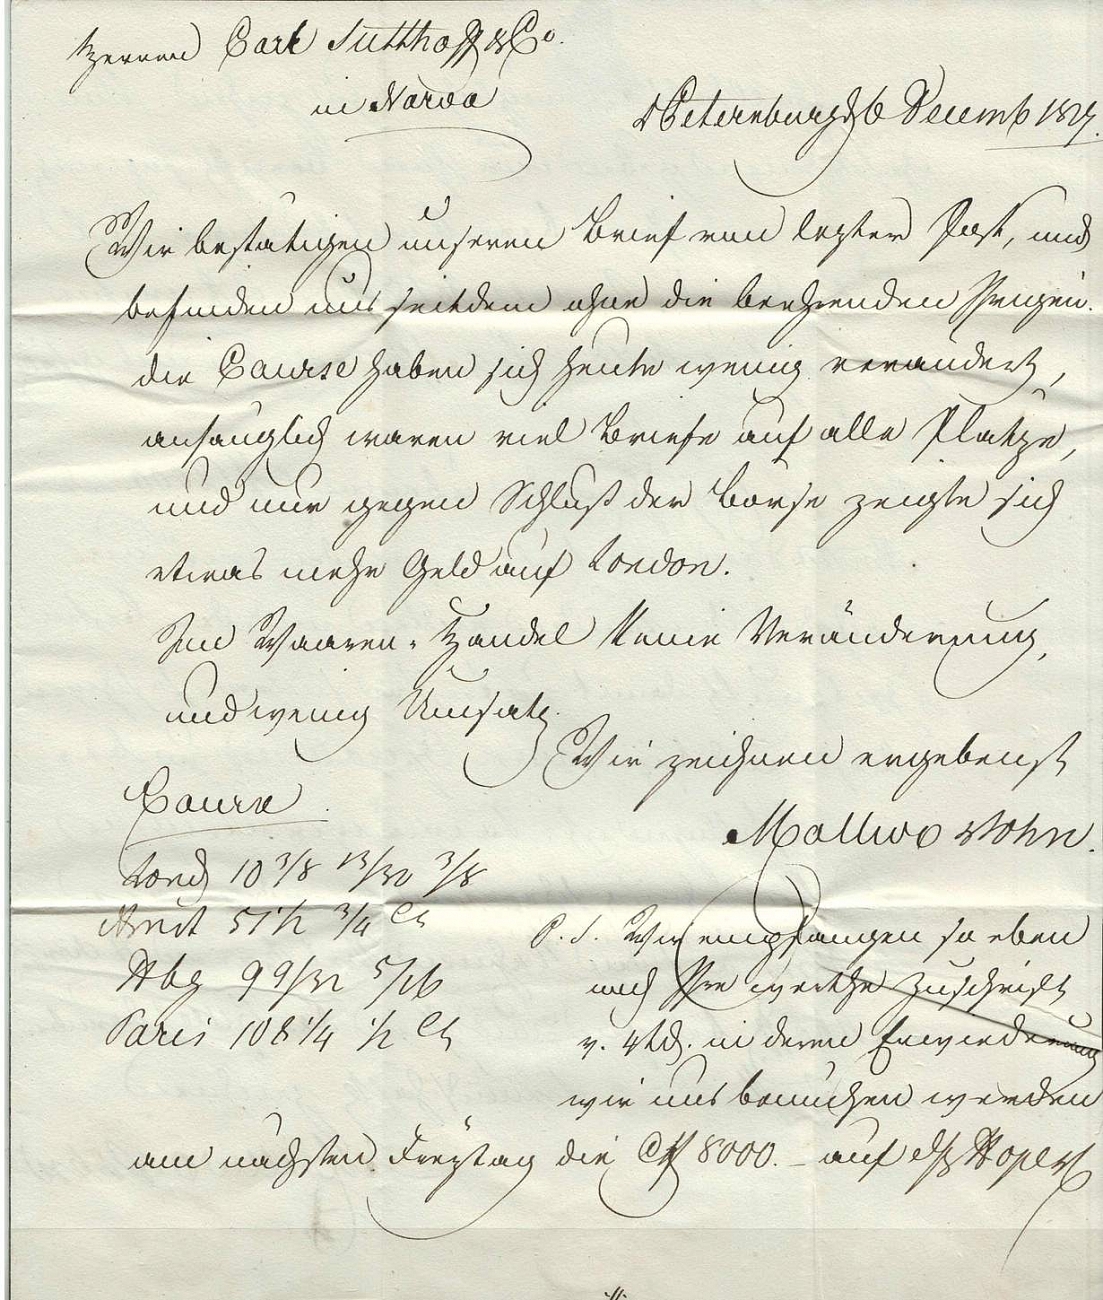 Herren Carl Sutthoff & Co.
in Narva
St Petersburg d 6 Decemb 1827.
Wir bestätigen unseren Brief von letzter Post, und
befinden uns seitdem ohne die beehrenden Ihrigen.
die Course haben sich heute wenig verändert,
anfänglich waren viel Briefe auf alle Plätze,
und nur gegen Schluß der Börse zeigte sich
etwas mehr Geld auf London.
Im Waaren-Handel keine Veränderung,
und wenig Umsatz.
Wir zeichnen ergebenst
Course
Mollwo & Sohn.
Lond 10 3/8 13/32 3/8
Amst 51 1/2 3/4 Cs
Hbg 9 9/32 5/16
Paris 108 1/4 1/2 Cs
P. S. Wir empfangen so eben
noch Ihre werthe Zuschrift
v. 4 d. in deren Erwiederung
wir uns bemühen werden
am nächsten Freytag die 8000. – auf